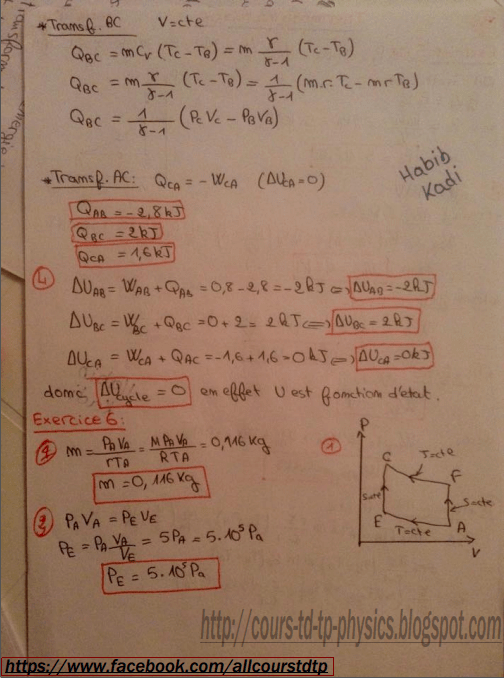 *Transf. BC V=cte
Q_BC = mCv (T_C - T_B) = m r/(γ-1) (T_C - T_B)
Q_BC = m r/(γ-1) (T_C - T_B) = 1/(γ-1) (m.r.T_C - mrT_B)
Q_BC = 1/(γ-1) (P_C V_C - P_B V_B)
Habib
Kadi
*Transf. AC: Q_CA = - W_CA (ΔU_CA = 0)
Q_AB = -2,8 kJ
Q_BC = 2 kJ
Q_CA = 1,6 kJ
4) ΔU_AB = W_AB + Q_AB = 0,8 - 2,8 = -2 kJ ⇔ ΔU_AB = -2 kJ
ΔU_BC = W_BC + Q_BC = 0 + 2 = 2 kJ ⇔ ΔU_BC = 2 kJ
ΔU_CA = W_CA + Q_AC = -1,6 + 1,6 = 0 kJ ⇔ ΔU_CA = 0 kJ
donc ΔU_cycle = 0 en effet U est fonction d'état.
Exercice 6:
2) m = P_A V_A / rT_A = M P_A V_A / RT_A = 0,116 Kg
m = 0,116 Kg
3) P_A V_A = P_E V_E
P_E = P_A V_A/V_E = 5P_A = 5.10^5 Pa
P_E = 5.10^5 Pa
1) P
C T=cte F
S=cte S=cte
E T=cte A
V
http://cours-td-tp-physics.blogspot.com
https://www.facebook.com/allcourstdtp